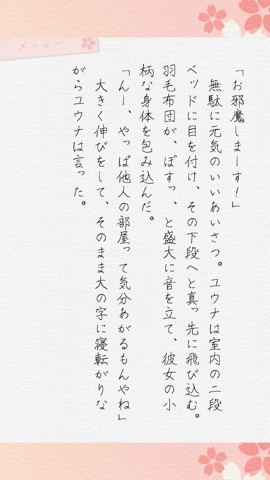 メニュー
「お邪魔しまーす！」
　無駄に元気のいいあいさつ。ユウナは室内の二段
ベッドに目を付け、その下段へと真っ先に飛び込む。
羽毛布団が、ぼすっ、と盛大に音を立て、彼女の小
柄な身体を包み込んだ。
「んー、やっぱ他人の部屋って気分あがるもんやね」
　大きく伸びをして、そのまま大の字に寝転がりな
がらユウナは言った。